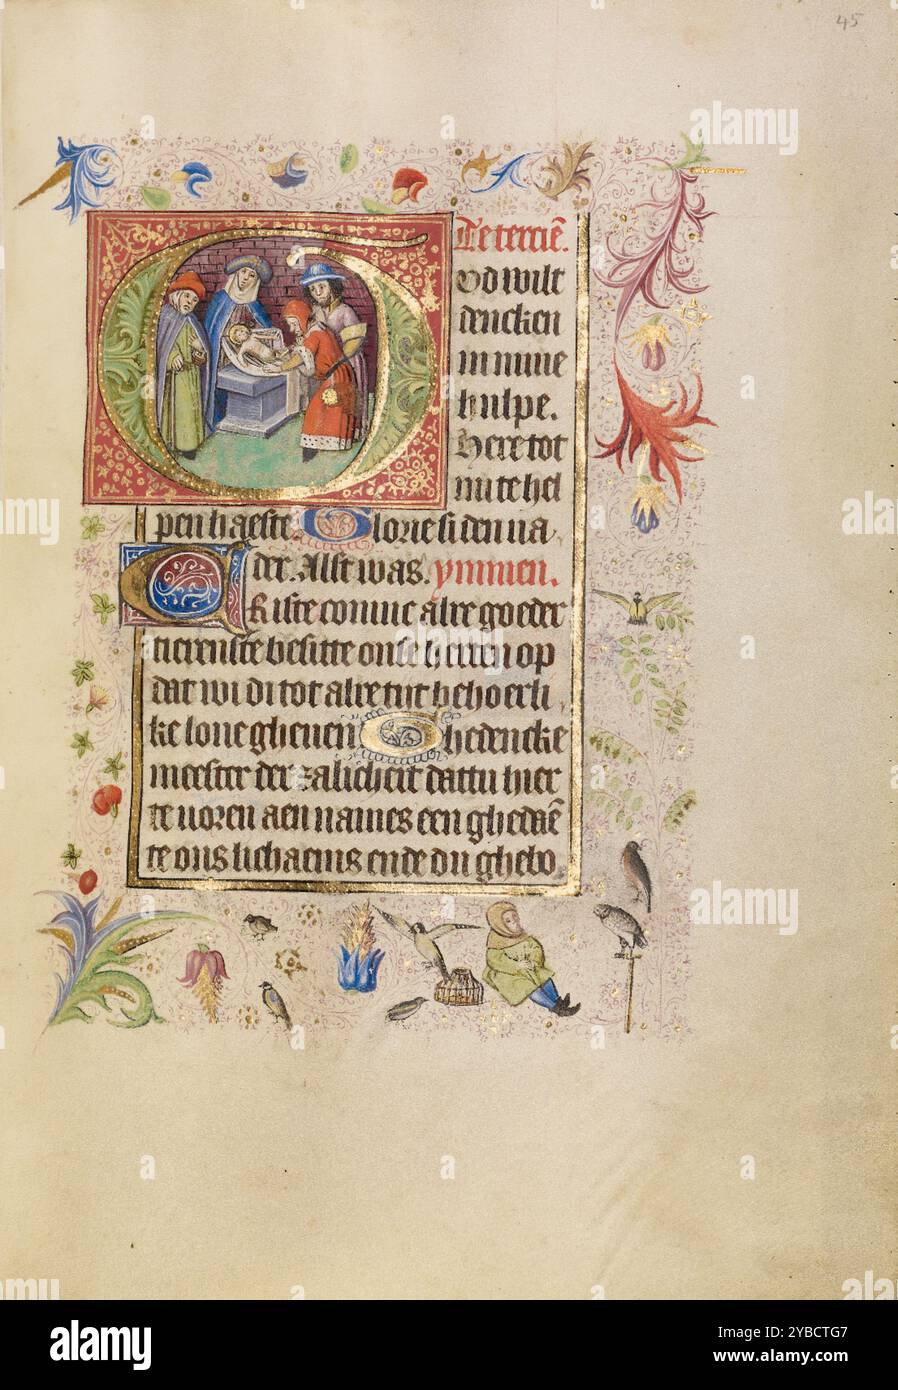 45
Te terciē.
God wilt
dencken
in mine
hulpe.
Here tot
mi te hel
pen haeste Glorie si den va
der. Alst was. ymmen.
Kriste comme alre goeder
tierenste besitte onse herten op
dat wi di tot alre tijt behoerli
ke loue gheuen Ghedencke
meester der zalicheit dattu hier
te uoren aen names een ghedaē
te ons lichaems ende du ghebo
alamy
Image ID: 2YBCTG7
www.alamy.com